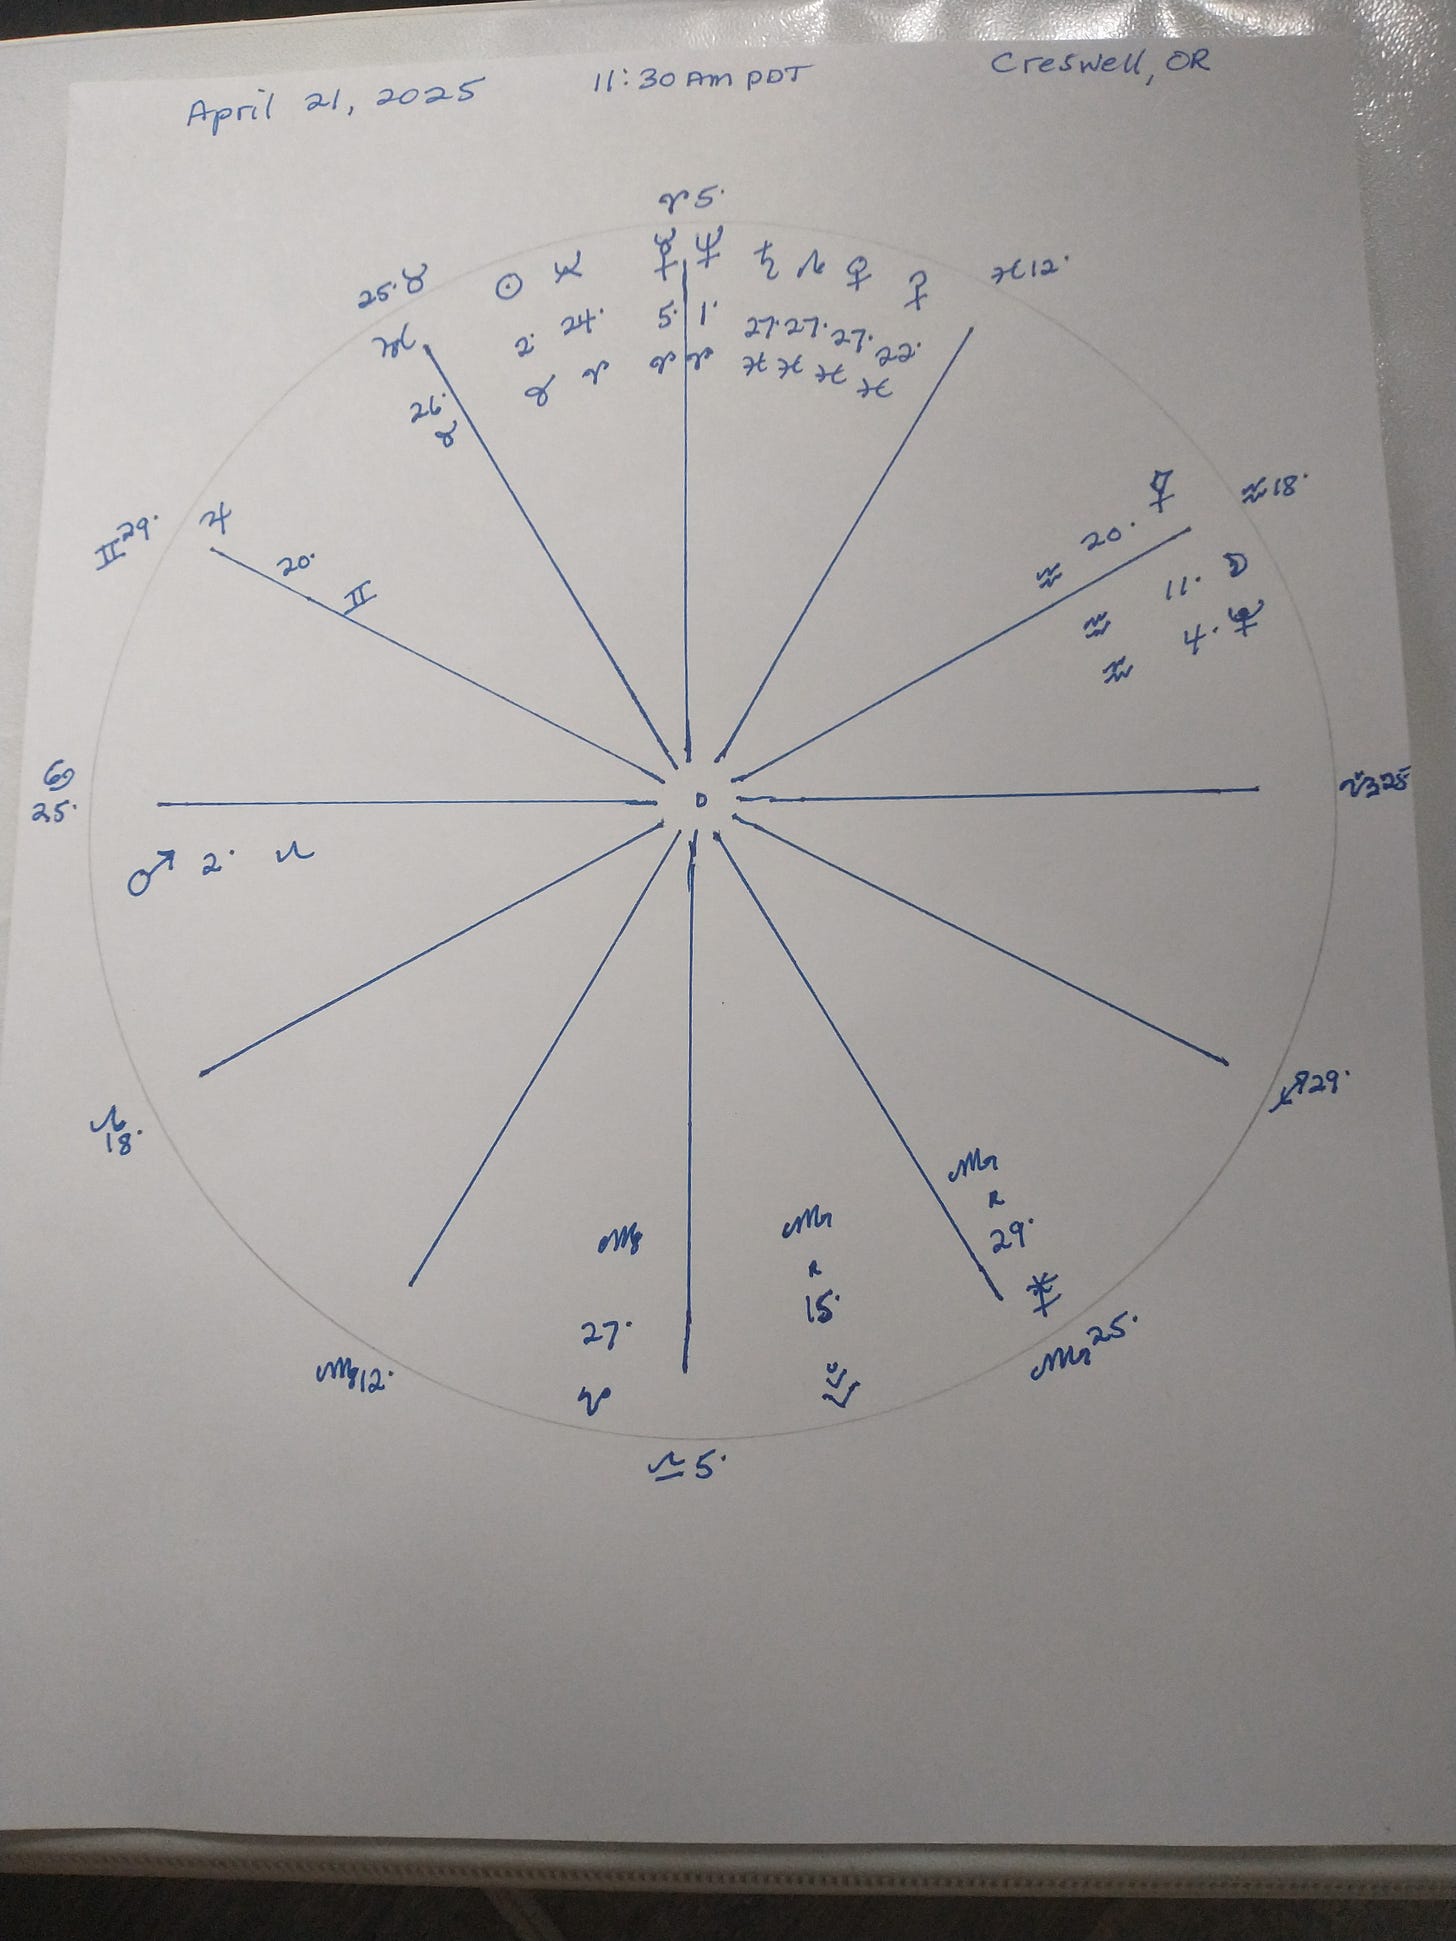 April 21, 2025 11:30 AM PDT Creswell, OR
♈ 5°
25° ♉
☉ ☿ ♆ ♄ ♀ ♓ 12°
2° 24° 5° 1° 27° 27° 27° 22°
♉ ♈ ♈ ♈ ♓ ♓ ♓ ♓
26°
♉
♊ 29° ♃
20° ♊
♒ 20°
♒ 18°
♒ 11° ☽
♒ 4°
♋
25°
D
♑ 25
♂ 2° ♌
♌
18°
♐ 29°
♍ ♏ ♏
R R
27° 15° 29°
♍ 12°
♏ 25°
♎ 5°